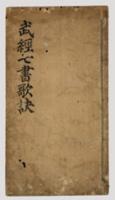 武經七書歌訣